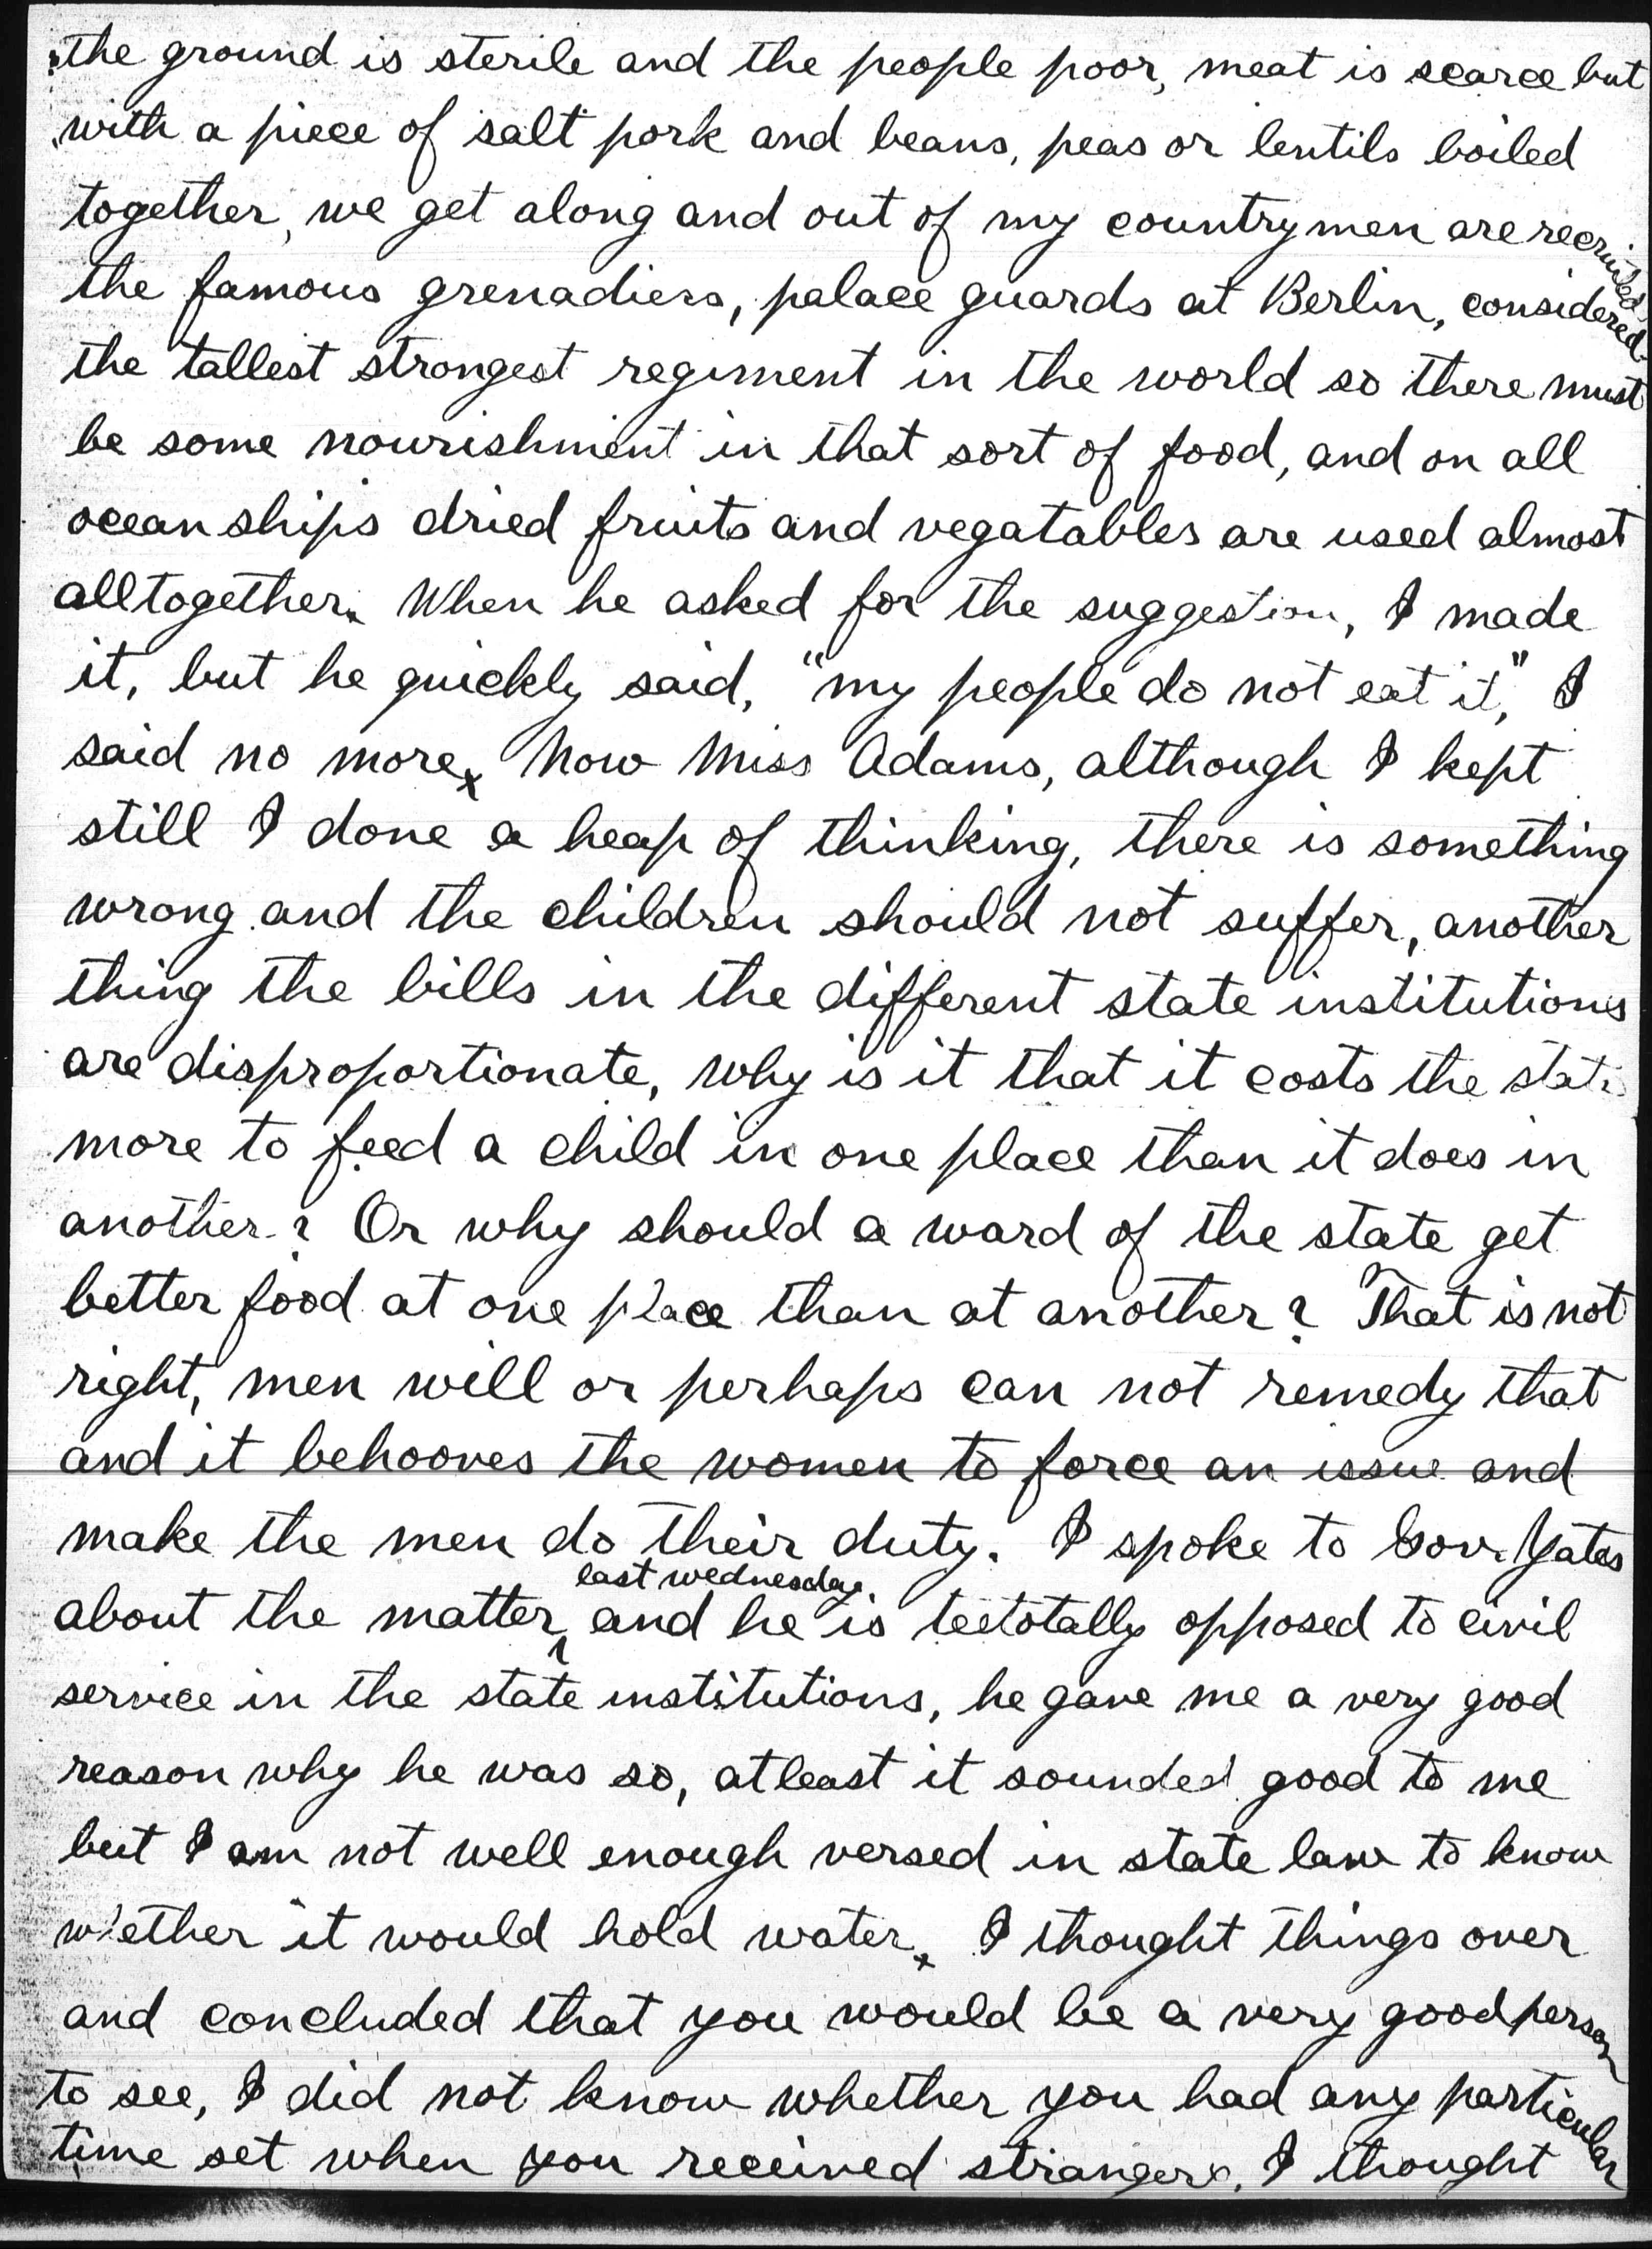 the ground is sterile and the people poor, meat is scarce but
with a piece of salt pork and beans, peas or lentils boiled
together, we get along and out of my countrymen are recruited
the famous grenadiers, palace guards at Berlin, considered
the tallest strongest regiment in the world so there must
be some nourishment in that sort of food, and on all
ocean ships dried fruits and vegatables are used almost
alltogether. When he asked for the suggestion, I made
it, but he quickly said, "my people do not eat it", I
said no more. Now Miss Adams, although I kept
still I done a heap of thinking, there is something
wrong and the children should not suffer, another
thing the bills in the different state institutions
are disproportionate, why is it that it costs the state
more to feed a child in one place than it does in
another? Or why should a ward of the state get
better food at one place than at another? That is not
right, men will or perhaps can not remedy that
and it behooves the women to force an issue and
make the men do their duty. I spoke to Gov. Yates
last wednesday.
about the matter, and he is teetotally opposed to civil
service in the state institutions, he gave me a very good
reason why he was so, atleast it sounded good to me
but I am not well enough versed in state law to know
whether it would hold water. I thought things over
and concluded that you would be a very good person
to see, I did not know whether you had any particular
time set when you received strangers. I thought